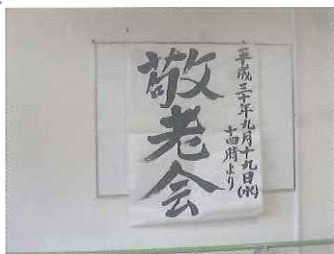 平成三十年九月十九日(水)
十四時より
敬老会